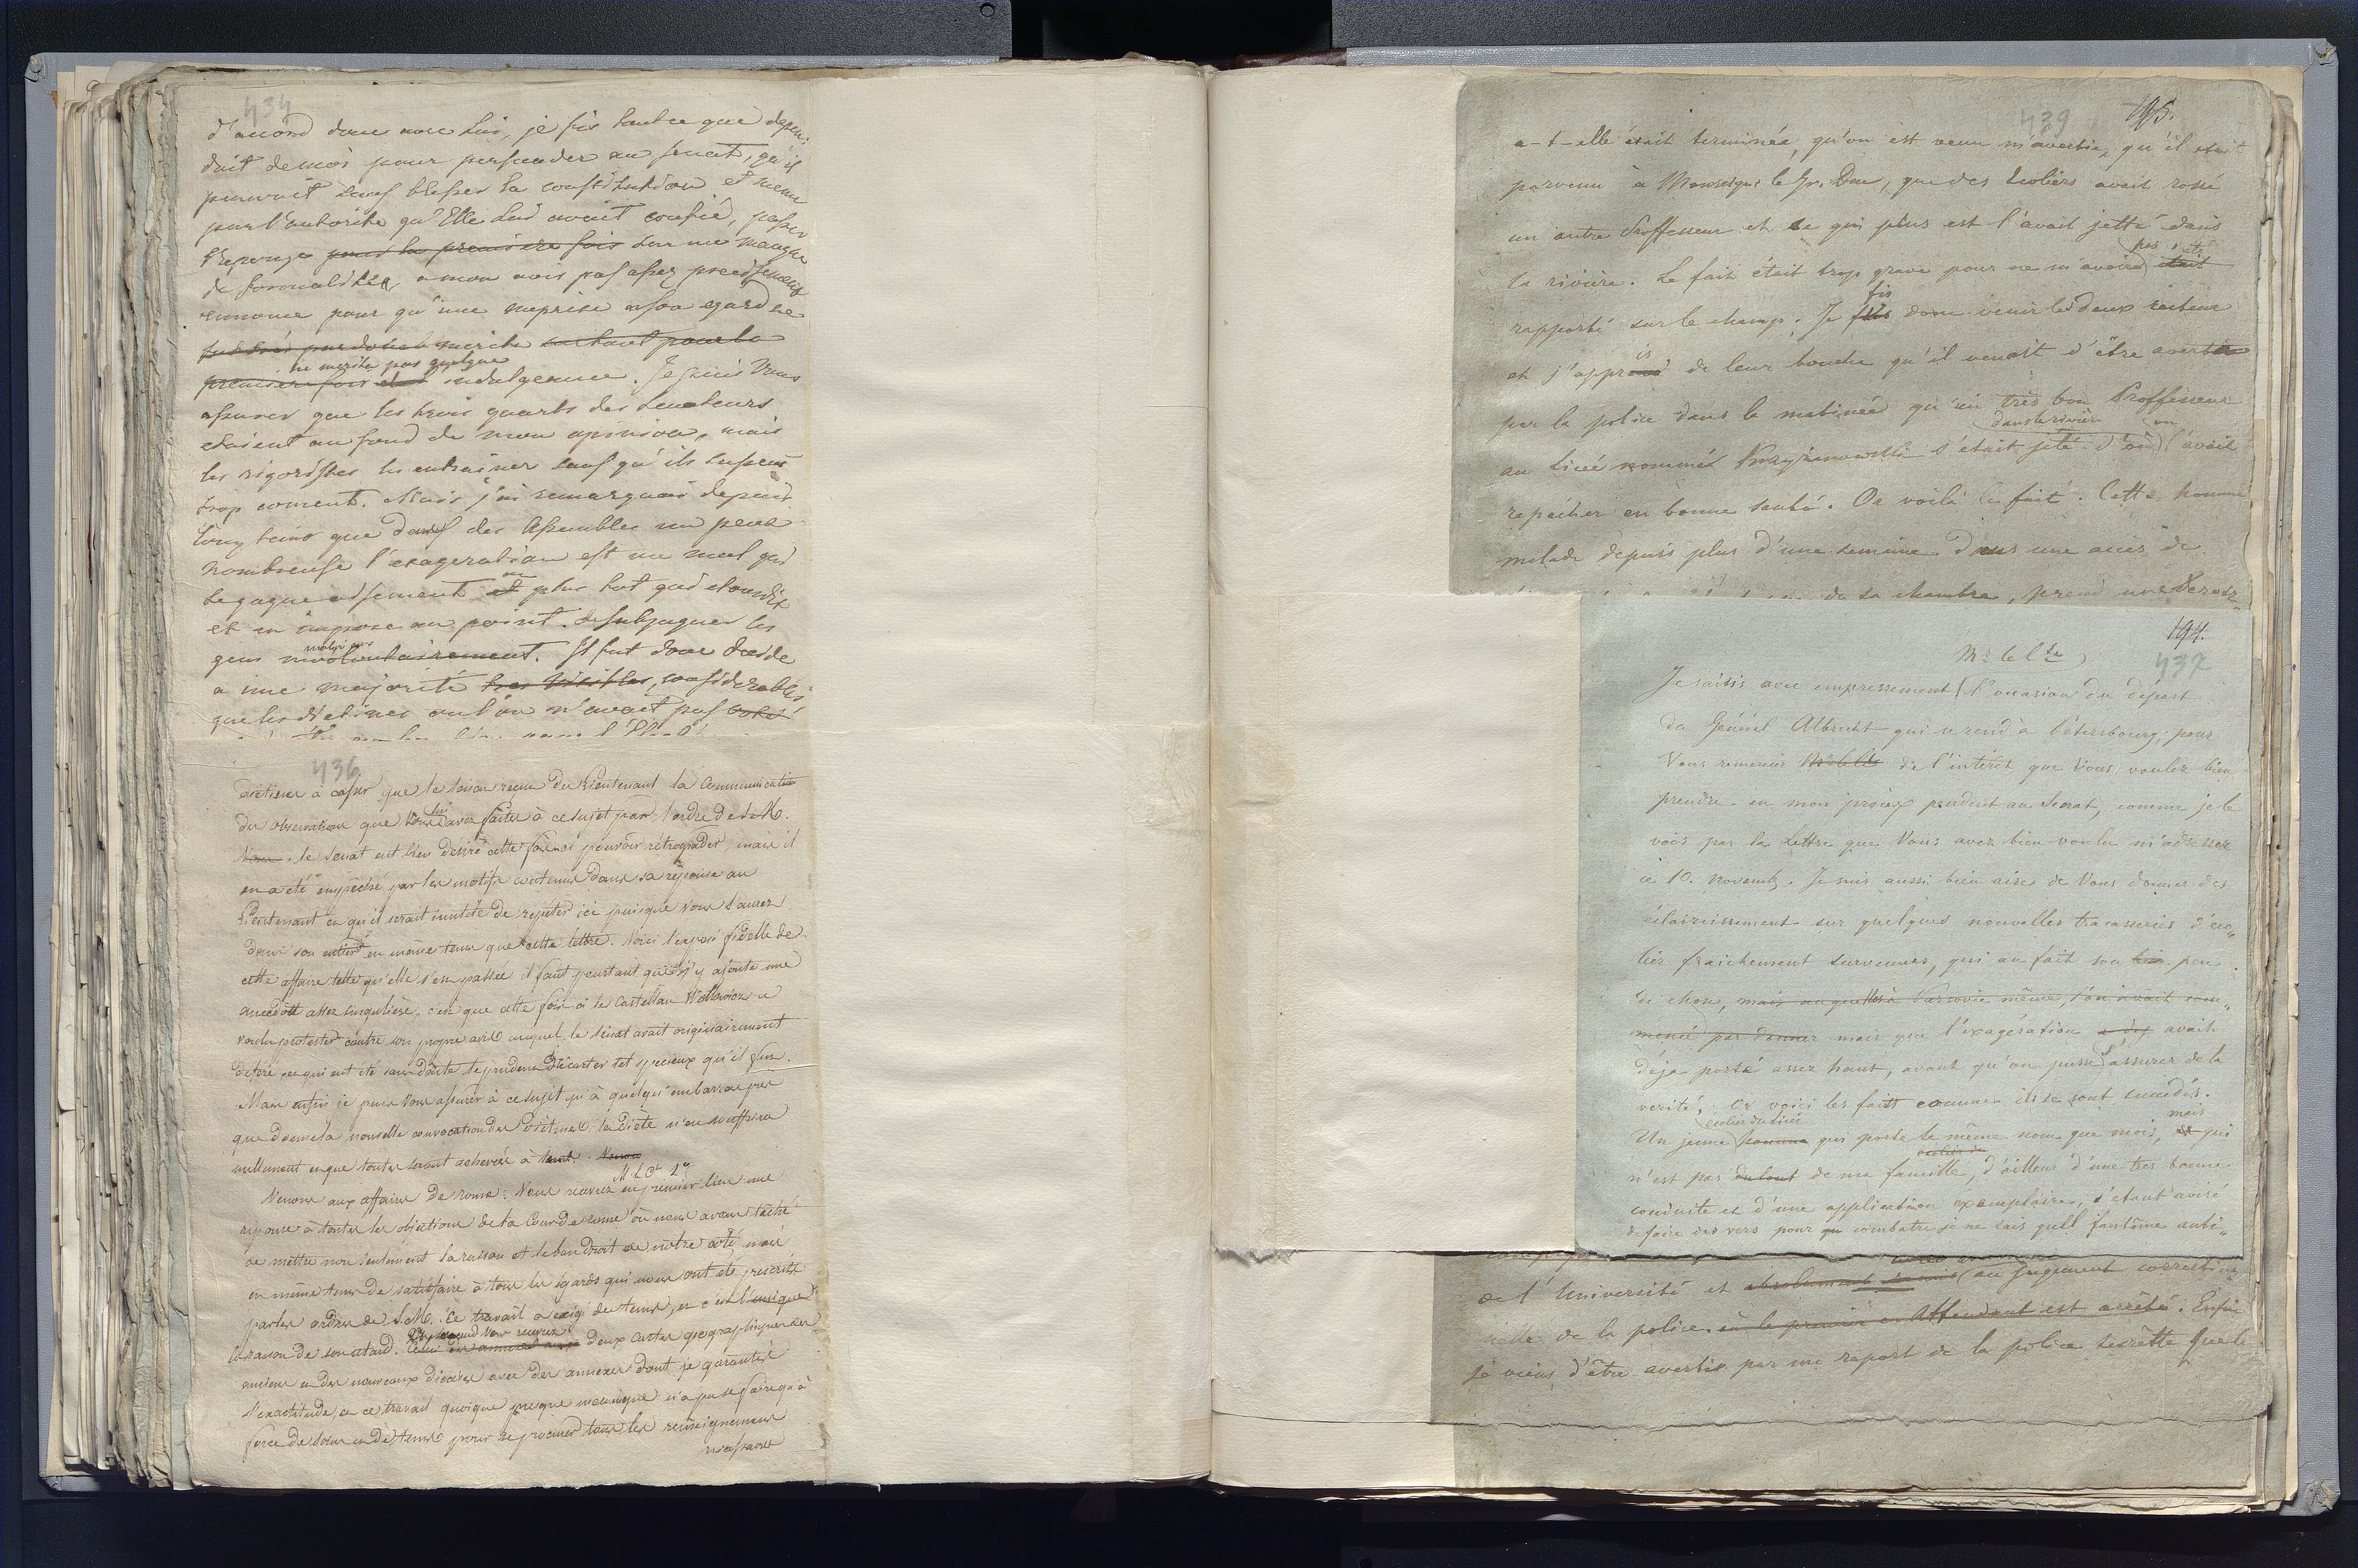 434
d'accord donc avec lui, je fis tout ce que depen-
dait de moi pour persuader au senat, qu'il
pouvait sans blesser la constitution et meme
par l'autorite qu'Elle lui avait confié, passer
l'eponge pour la premiere fois sur un manque
de formalités, a mon avis pas assez precisement
enoncé pour qu'une meprise a son egard ne
merite surtout pour la
ne merite pas quelque
premiere fois indulgence. Je puis Vous
assurer que les trois quarts des Senateurs
etaient au fond de mon opinion, mais
les rigoristes les entrainer sans qu'ils sussent
trop coment. Mais j'ai remarquai depuis
long tems que dans des Assemblés un peu
nombreuse l'exageration est un mal qui
se gagne aisement ou plus tot qui etourdit
et en impose au point de subjuguer les
malgré eux
gens involontairement. Il fut donc decidé
a une majorité tres visibles, considerables
que les Dietines ou l'on n'avait pas voté
436
dietines à casser que le senat reçu du Lieutenant la Communication
des observations que Vous lui avez faites à ce sujet par l'ordre de S. M.
le Senat eut bien desiré cette fois ci pouvoir rétrograder, mais il
en a été empêché par les motifs contenus dans sa réponse au
Lieutenant ce qu'il serait inutile de repeter ici puisque vous l'aurez
dans son entier en même tems que cette lettre. Voici l'exposé fidelle de
cette affaire telle qu'elle s'est passée il faut pourtant que j'y ajoute une
anecdote assez singulière, c'est que cette fois ci le Castellan a
voulu protester contre son propre avis auquel le sénat avait originairement
deferé, ce qui eut été sans doute le prudent d'écarter tot specieux qu'il fut.
Mais enfin je puis vous assurer à ce sujet qu'à quelques embarras près
que donnera la nouvelle convocation des Dietines, la Diete n'en souffrira
nullement en que toutes seront achevées à tems.
M. L. Ct
Venons aux affaires de rome: Vous recevrez en premier lieu une
reponse à toutes les objections de la Cour de rome où nous avons taché
de mettre non seulement la raison et le bon droit de nôtre coté mais
en même tems de satisfaire à tous les égards qui nous ont été prescrits
par les ordres de S. M. Ce travail a exigé du tems, et c'est l'unique
En second Vous recevrez
la raison de son retard. deux cartes geographiques des
anciens et des nouveaux dioceses avec des annexes dont je garantis
l'exactitude, et ce travail quoique presque mecanique n'a pu se faire qu'à
force de soins et de tems pour se procurer tous les renseignements
necessaires
439 195.
a-t-elle était terminée, qu'on est venu m'avertir, qu'il etait
parvenu à Monseigr le Gr. Duc, que des Ecoliers avait rossé
un autre Proffesseur et ce qui plus est l'avait jetté dans
pas été
la rivière. Le fait était trop grave pour ne m'avoir était
fis
rapporté sur le champ. Je fus donc venir les deux recteur
is
et j'apprend de leur bouche qu'il venoit d'être averti
par la police dans la matinée qu'un très bon Proffesseur
dans la rivière on
au Liceé nommés s'était jeté d'où l'avait
repécher en bonne santé. Or voilà le fait. Cette homme
malade depuis plus d'une semaine dans une accès de
de sa chambre, prend une
194.
437
Mr le Cte
Je saisis avec empressement l'occasion du départ
du Général Albrecht qui se rend à Pétersbourg, pour
Vous remercier Mr le Cte de l'intérêt que Vous voulez bien
prendre en mon procès pendent au Senat, comme je le
vois par la Lettre que Vous avez bien voulu m'adresser
ce 10. novemb. Je suis aussi bien aise de Vous donner des
éclaircissement sur quelques nouvelles tracasseries d'eco„
lier fraichement survenues, qui au fait son bien peu
de chose, mais auquelles à Varsovie même, l'on avait com„
mencé par donner mais que l'exagération a dej avait
déja porté assez haut, avant qu'on pusse s'assurer de la
verité, Or voici les faits comme ils se sont succedés.
ecolier du licée mais
Un jeune homme qui porte le même nom que mois, et qui
n'est pas du tout de ma famille, d'ailleur d'une tres bonne
conduite et d'une application exemplaire, s'etant avisé
de faire des vers pour qu combatre je ne sais quel fantôme anti„
de l'Université et absolument au jugement correction„
nelle de la police. Attendant est arrêté. Enfin
je viens d'être avertis par un raport de la police secrètte que le